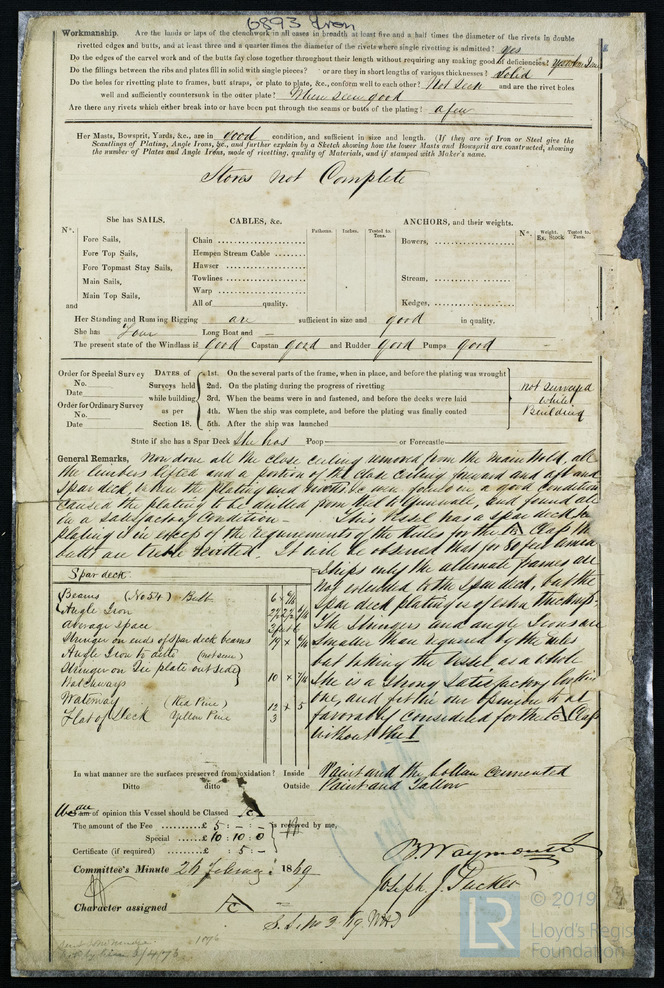 6893 Iron
Workmanship. Are the hands or laps of the clenchwork in all cases in breadth at least five and a half times the diameter of the rivets in double
rivetted edges and butts, and at least three and a quarter times the diameter of the rivets where single rivetting is admitted? yes
Do the edges of the carvel work and of the butts fay close together throughout their length without requiring any making good of deficiencies?
Do the fillings between the ribs and plates fill in solid with single pieces? or are they in short lengths of various thicknesses? Solid
Do the holes for rivetting plate to frames, butt straps, or plate to plate, &c., conform well to each other? Not seen and are the rivet holes
well and sufficiently countersunk in the outer plate? When seen good
Are there any rivets which either break into or have been put through the seams or butts of the plating? a few
Her Masts, Bowsprit, Yards, &c., are in good condition, and sufficient in size and length. (If they are of Iron or Steel give the
Scantlings of Plating, Angle Irons, &c., and further explain by a Sketch showing how the lower Masts and Bowsprit are constructed, showing
the number of Plates and Angle Irons, mode of rivetting, quality of Materials, and if stamped with Maker's name.
Stores not Complete
She has SAILS. CABLES, &c. ANCHORS, and their weights.
N°. Fathoms. Inches. Tested to Tons. N°. Weight. Ex. Stock Tested to Tons.
Fore Sails, Chain Bowers,
Fore Top Sails, Hempen Stream Cable
Fore Topmast Stay Sails, Hawser
Main Sails, Towlines Stream,
Main Top Sails, Warp
and All of quality. Kedges,
Her Standing and Running Rigging are sufficient in size and good in quality.
She has Four Long Boat and —
The present state of the Windlass is good Capstan good and Rudder good Pumps good
Order for Special Survey No. Date
Order for Ordinary Survey No. Date
DATES of Surveys held while building as per Section 18.
1st. On the several parts of the frame, when in place, and before the plating was wrought
2nd. On the plating during the progress of rivetting
3rd. When the beams were in and fastened, and before the decks were laid
4th. When the ship was complete, and before the plating was finally coated
5th. After the ship was launched
not surveyed while Building
State if she has a Spar Deck She has Poop — or Forecastle —
General Remarks, Now done all the close ceiling removed from the main hold, all
the limbers lifted and a portion of the close ceiling forward and aft and
spar deck, when the plating and rivets &c were found in a good condition
caused the plating to be drilled from keel to gunwale, and found all
in a satisfactory condition — This vessel has a spar deck
plating is in excess of the requirements of the Rules for the A Class the
butts are treble rivetted. It will be observed that for 80 feet
ships only the alternate frames are
not extended to the spar deck, but the
spar deck plating is of extra thickness.
The stringers and angle irons are
smaller than required by the rules
but taking the vessel as a whole
she is a strong satisfactory looking
one, and fit in our opinion to be
favorably considered for the A Class
without the 1
Spar deck.
Beams (No 54) Bulb
Angle Iron
average space
Stringer on ends of spar deck beams
Angle Iron to ditto (not seen)
Stringer or Tie plate outside
Hatchways
Waterway (Red Pine) 12 × 5
Flat of Deck Yellow Pine 3
In what manner are the surfaces preserved from oxidation? Inside Paint and the bottom cemented
Ditto ditto Outside Paint and Tallow
We are of opinion this Vessel should be Classed
The amount of the Fee £ 5 : – : – is received by me,
Special £ 10 : 10 : 0
Certificate (if required) £ : 5 : –
B. Waymouth
Committee's Minute 26 February 1869
Joseph J. Tucker
Character assigned
© 2019
LR
Lloyd's Regis
Foundation